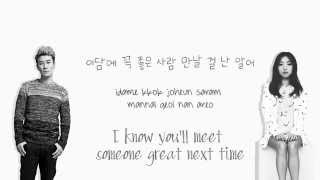 이담에 꼭 좋은 사람 만날 걸 난 알어
idame kkok joheun saram
mannal geol nan areo
I know you'll meet
someone great next time